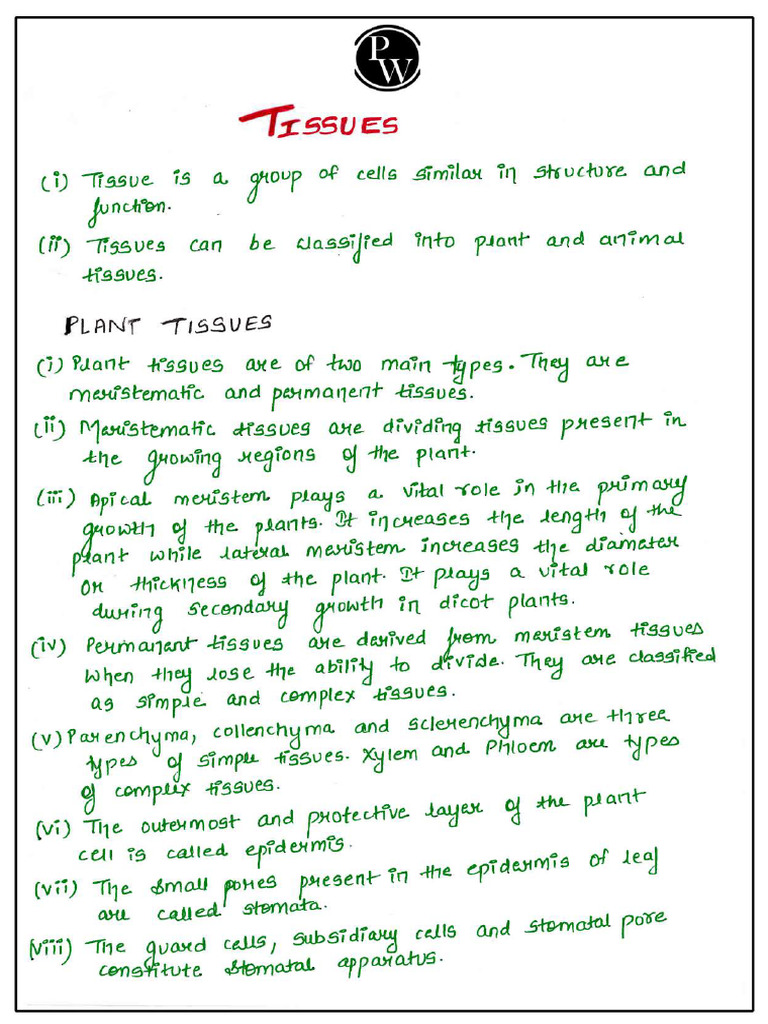 P
W
TISSUES
(i) Tissue is a group of cells similar in structure and
function.
(ii) Tissues can be classified into plant and animal
tissues.
PLANT TISSUES
(i) Plant tissues are of two main types. They are
meristematic and permanent tissues.
(ii) Meristematic tissues are dividing tissues present in
the growing regions of the plant.
(iii) Apical meristem plays a vital role in the primary
growth of the plants. It increases the length of the
plant while lateral meristem increases the diameter
or thickness of the plant. It plays a vital role
during secondary growth in dicot plants.
(iv) Permanent tissues are derived from meristem tissues
when they lose the ability to divide. They are classified
as simple and complex tissues.
(v) Parenchyma, collenchyma and sclerenchyma are three
types of simple tissues. Xylem and Phloem are types
of complex tissues.
(vi) The outermost and protective layer of the plant
cell is called epidermis.
(vii) The small pores present in the epidermis of leaf
are called stomata.
(viii) The guard cells, subsidiary cells and stomatal pore
constitute stomatal apparatus.